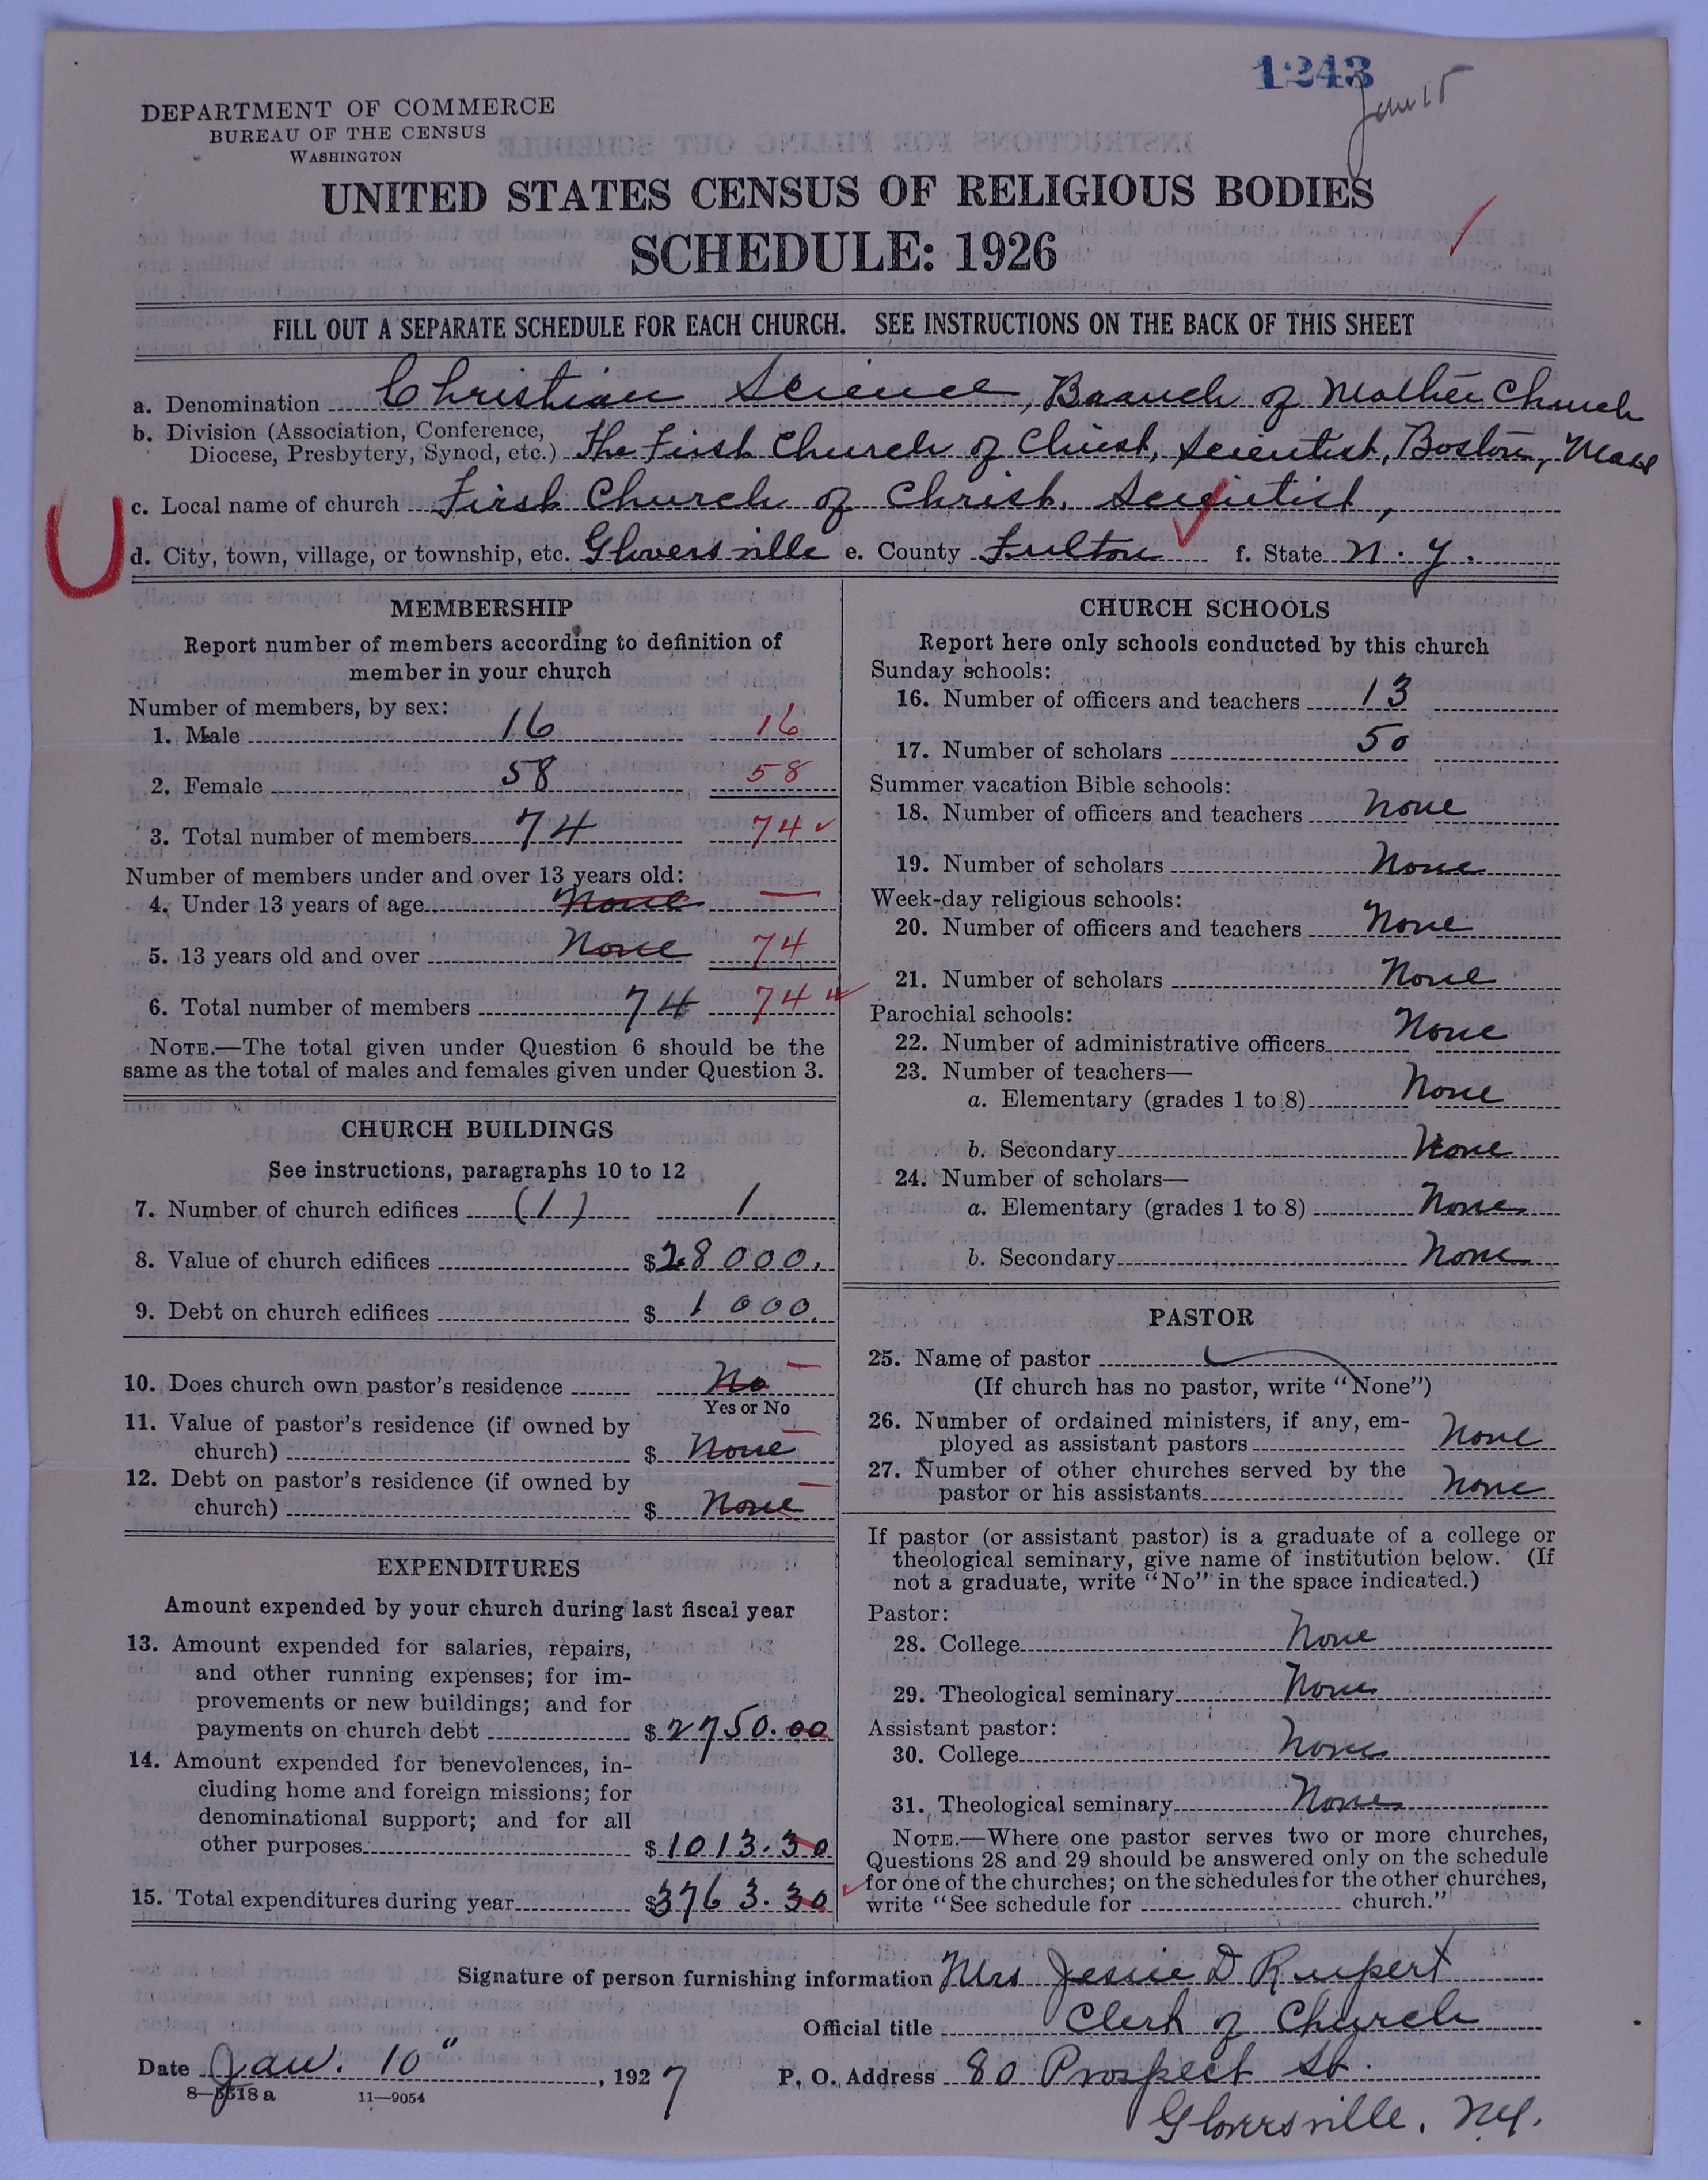 1243
Jan 15
DEPARTMENT OF COMMERCE
BUREAU OF THE CENSUS
WASHINGTON
UNITED STATES CENSUS OF RELIGIOUS BODIES
SCHEDULE: 1926
FILL OUT A SEPARATE SCHEDULE FOR EACH CHURCH. SEE INSTRUCTIONS ON THE BACK OF THIS SHEET
a. Denomination Christian Science, Branch of Mother Church
b. Division (Association, Conference,
Diocese, Presbytery, Synod, etc.) The First Church of Christ, Scientist, Boston, Mass
c. Local name of church First Church of Christ, Scientist,
d. City, town, village, or township, etc. Gloversville e. County Fulton f. State N. Y.
MEMBERSHIP
Report number of members according to definition of
member in your church
Number of members, by sex:
1. Male 16 16
2. Female 58 58
3. Total number of members 74 74
Number of members under and over 13 years old:
4. Under 13 years of age None —
5. 13 years old and over None 74
6. Total number of members 74 74
NOTE.—The total given under Question 6 should be the
same as the total of males and females given under Question 3.
CHURCH BUILDINGS
See instructions, paragraphs 10 to 12
7. Number of church edifices (1) 1
8. Value of church edifices $28000.
9. Debt on church edifices $1000.
10. Does church own pastor's residence No —
Yes or No
11. Value of pastor's residence (if owned by
church) $ None —
12. Debt on pastor's residence (if owned by
church) $ None —
EXPENDITURES
Amount expended by your church during last fiscal year
13. Amount expended for salaries, repairs,
and other running expenses; for im-
provements or new buildings; and for
payments on church debt $2750.00
14. Amount expended for benevolences, in-
cluding home and foreign missions; for
denominational support; and for all
other purposes $1013.30
15. Total expenditures during year $3763.30
CHURCH SCHOOLS
Report here only schools conducted by this church
Sunday schools:
16. Number of officers and teachers 13
17. Number of scholars 50
Summer vacation Bible schools:
18. Number of officers and teachers None
19. Number of scholars None
Week-day religious schools:
20. Number of officers and teachers None
21. Number of scholars None
Parochial schools:
22. Number of administrative officers None
23. Number of teachers—
a. Elementary (grades 1 to 8) None
b. Secondary None
24. Number of scholars—
a. Elementary (grades 1 to 8) None
b. Secondary None
PASTOR
25. Name of pastor
(If church has no pastor, write "None")
26. Number of ordained ministers, if any, em-
ployed as assistant pastors None
27. Number of other churches served by the
pastor or his assistants None
If pastor (or assistant pastor) is a graduate of a college or
theological seminary, give name of institution below. (If
not a graduate, write "No" in the space indicated.)
Pastor:
28. College None
29. Theological seminary None
Assistant pastor:
30. College None
31. Theological seminary None
NOTE.—Where one pastor serves two or more churches,
Questions 28 and 29 should be answered only on the schedule
for one of the churches; on the schedules for the other churches,
write "See schedule for church."
Signature of person furnishing information Mrs Jessie D Rupert
Official title Clerk of Church
Date Jan. 10", 1927 P. O. Address 80 Prospect St.
8—5518a 11—9054
Gloversville, N.Y.